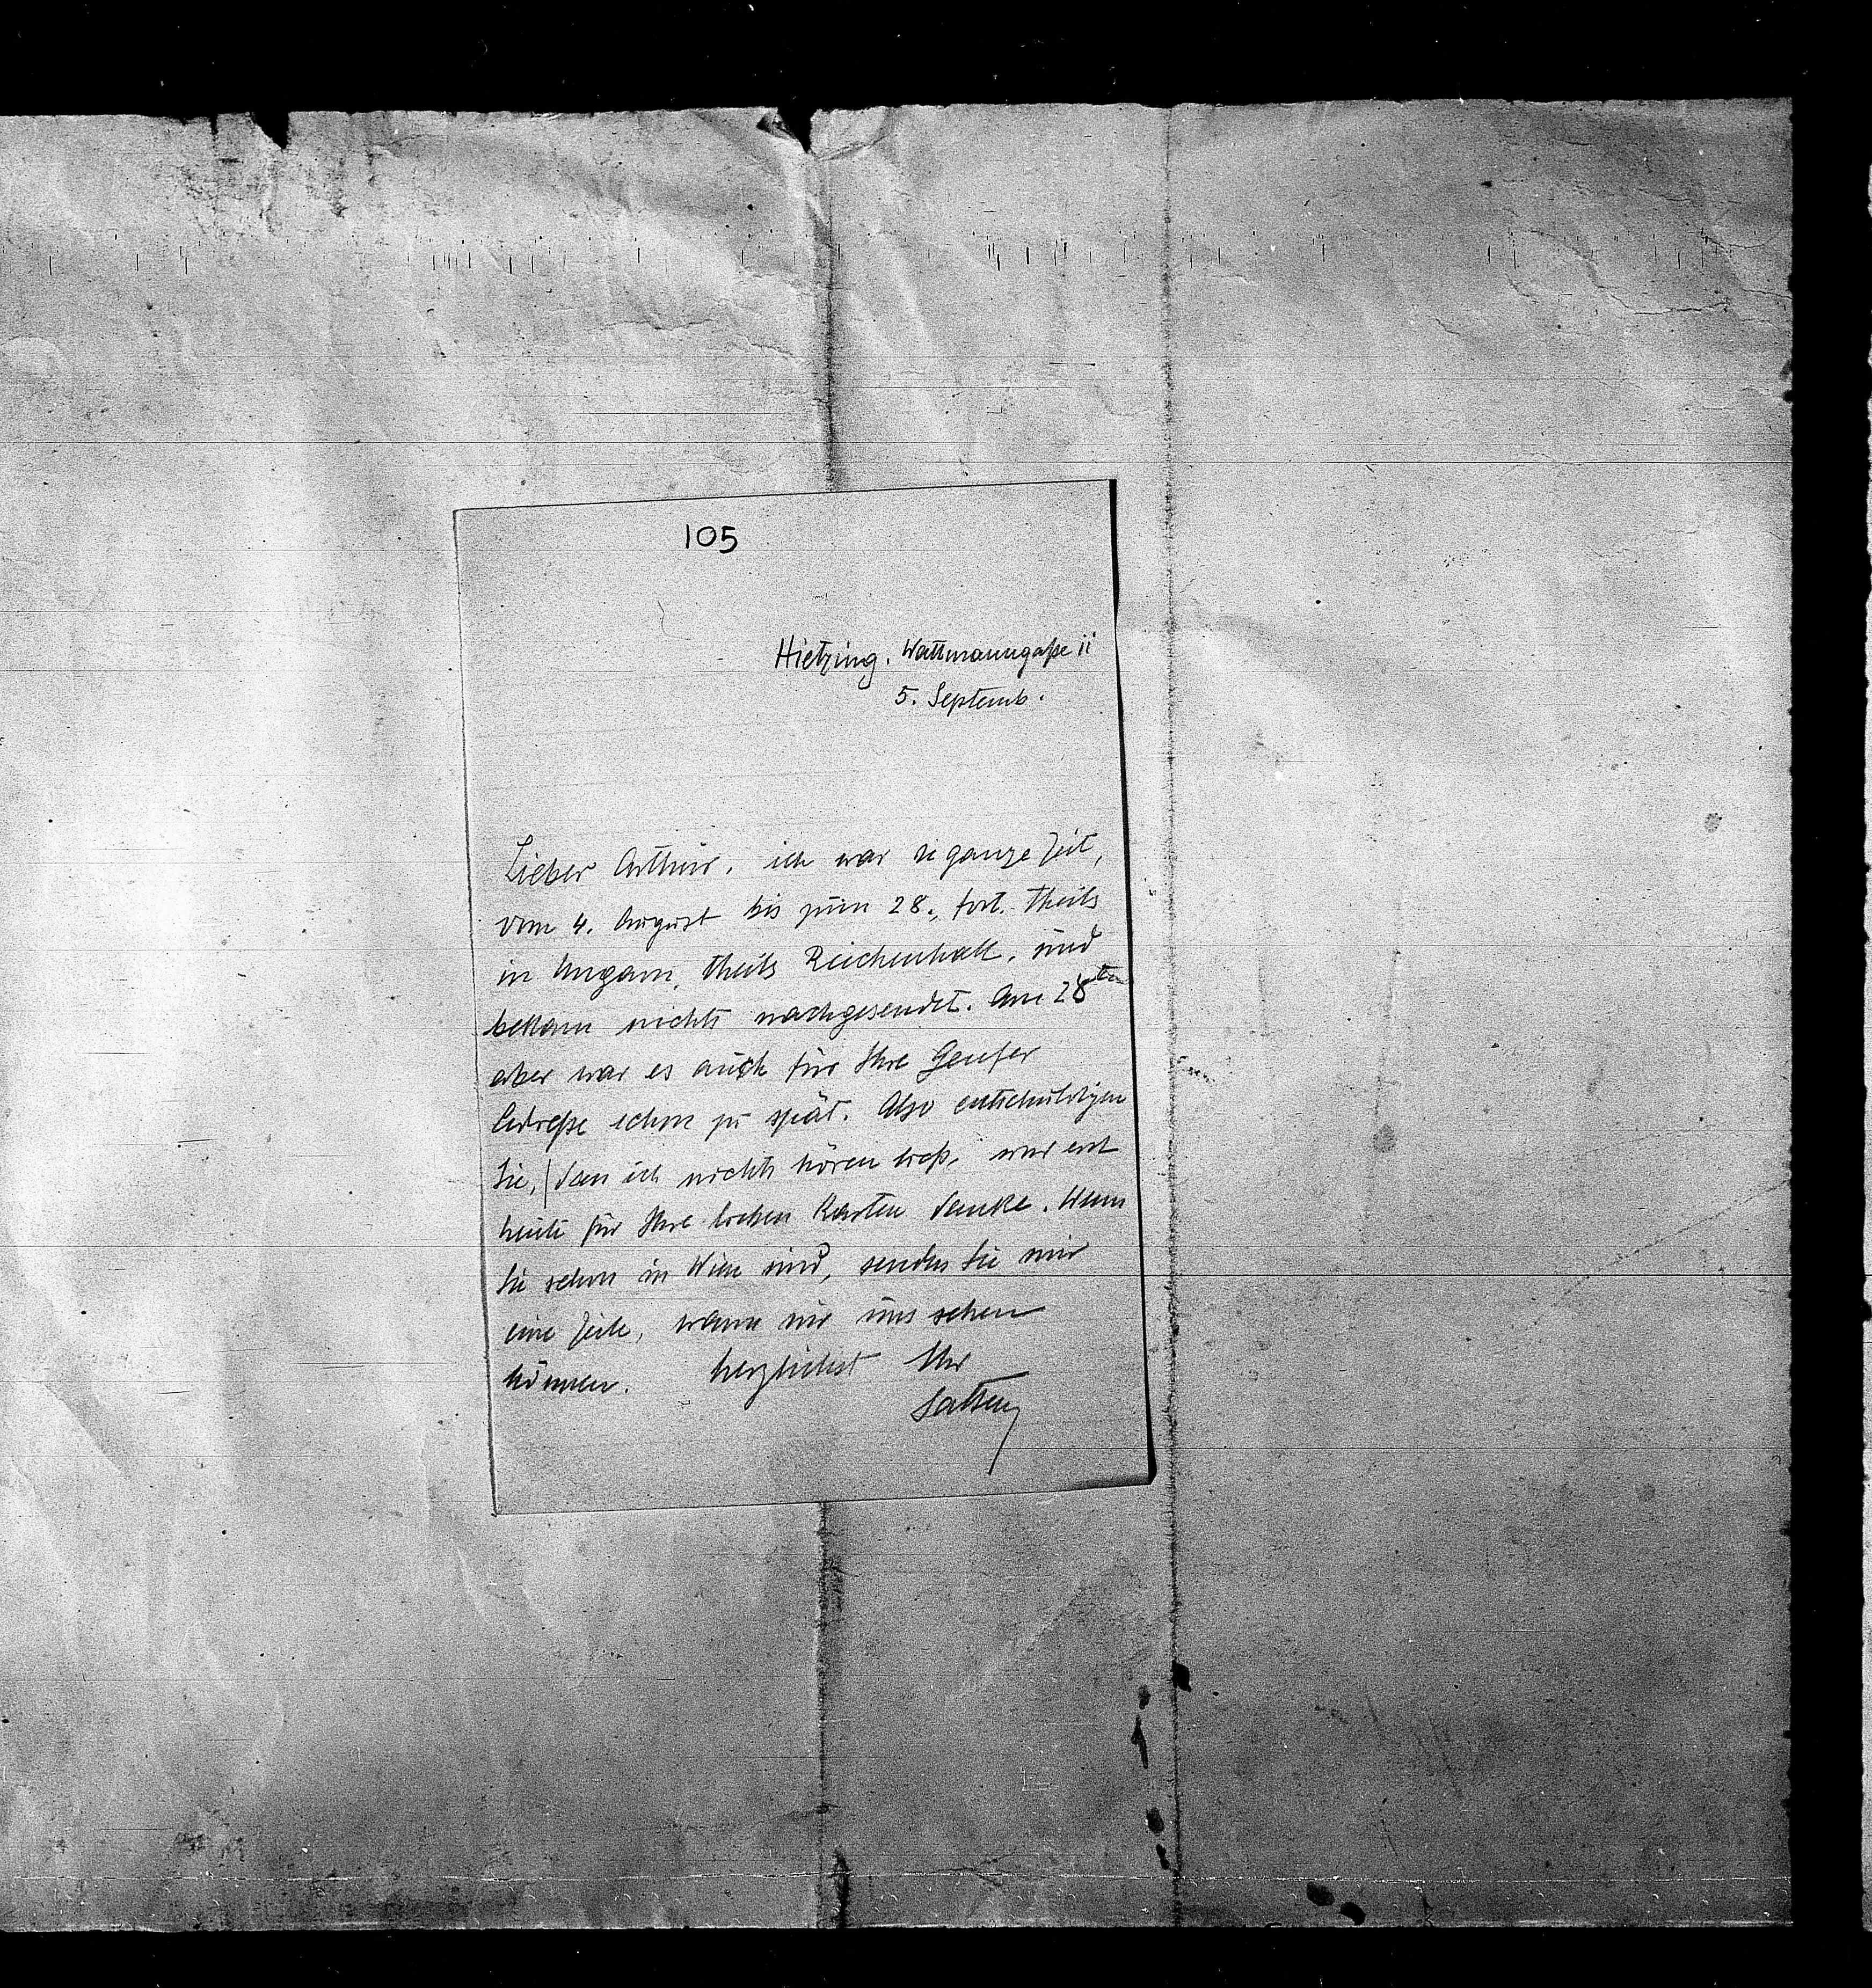 105
Hietzing. Wattmanngaße 11
5. Septemb.
Lieber Arthur, ich war die ganze Zeit,
vom 4. August bis zum 28., fort. Theils
in Ungarn, theils Reichenhall, und
bekam nichts nachgesendet. Am 28ten
aber war es auch für Ihre Genfer
Adreße schon zu spät. Also entschuldigen
Sie, dass ich nichts hören ließ, und erst
heute für Ihre lieben Karten danke. Wenn
Sie schon in Wien sind, senden Sie mir
eine Zeile, wann wir uns sehen
können. herzlichst Ihr
Salten